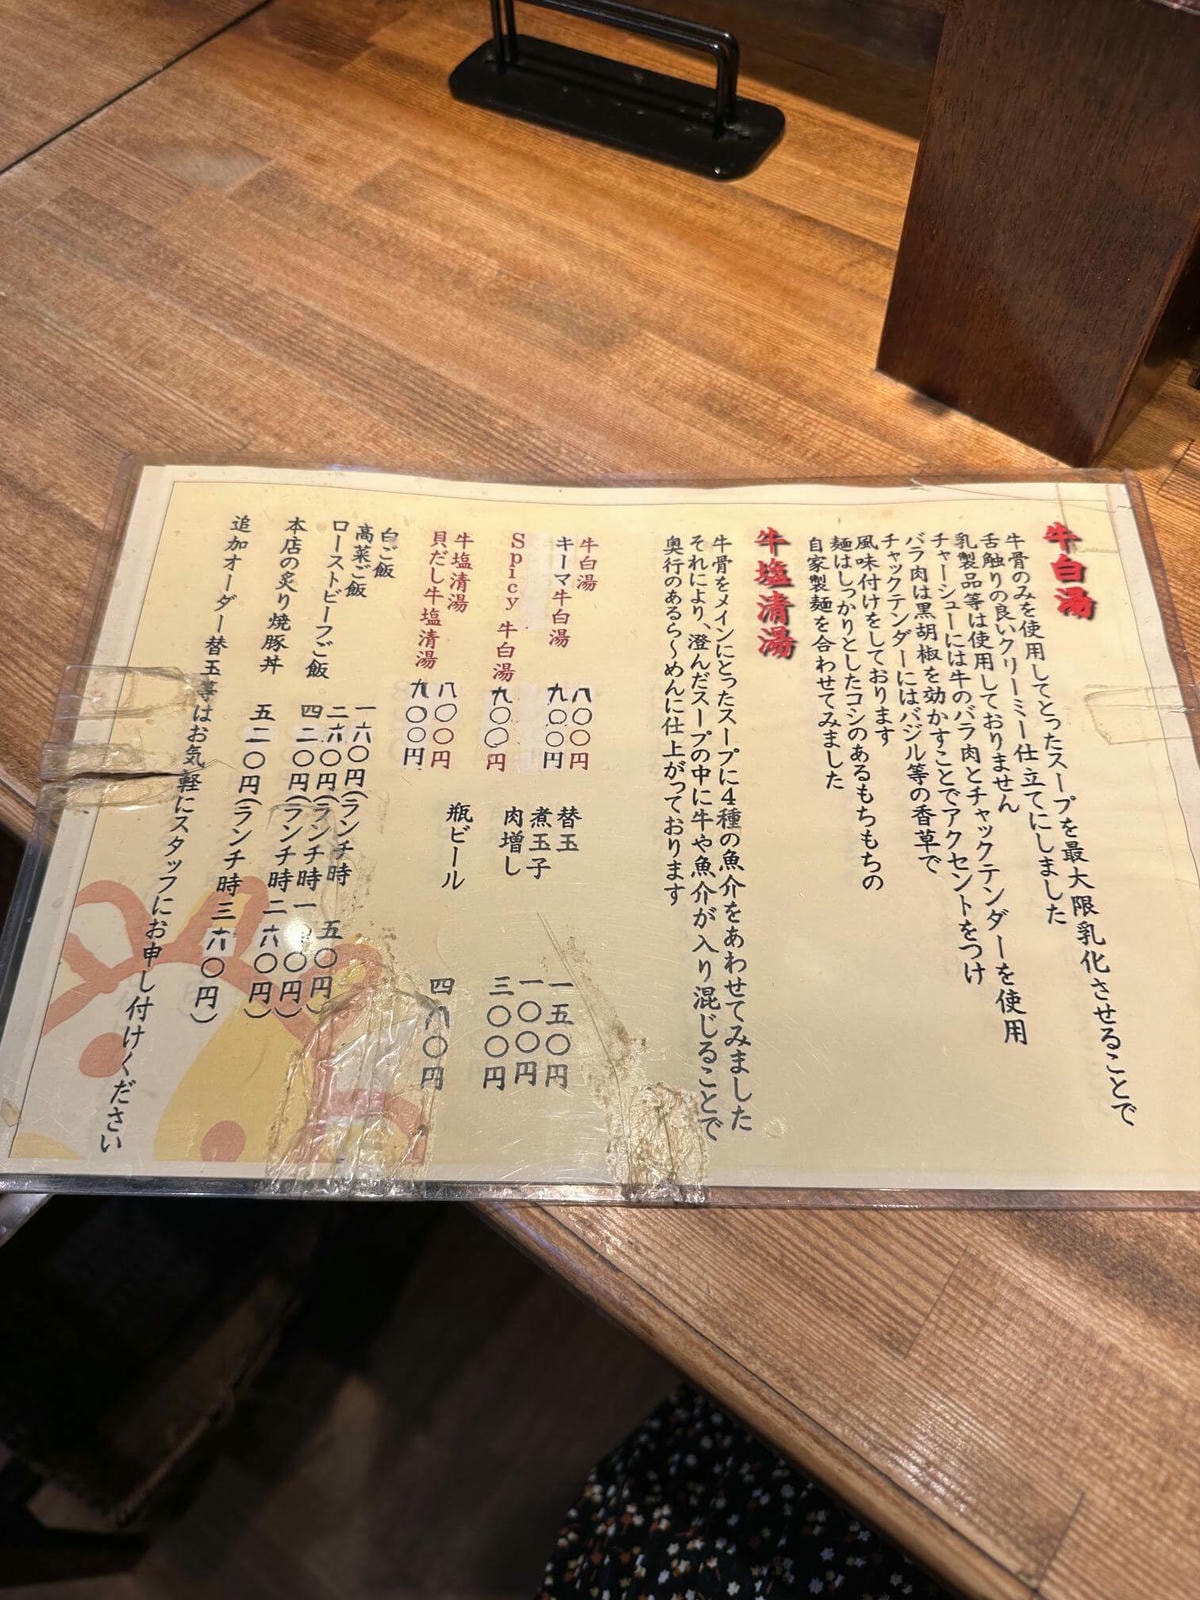 牛白湯
牛骨のみを使用してとったスープを最大限乳化させることで
舌触りの良いクリーミー仕立てにしました
乳製品等は使用しておりません
チャーシューには牛のバラ肉とチャックテンダーを使用
バラ肉は黒胡椒を効かすことでアクセントをつけ
チャックテンダーにはバジル等の香草で
風味付けをしております
麺はしっかりとしたコシのあるもちもちの
自家製麺を合わせてみました
牛塩清湯
牛骨をメインにとったスープに4種の魚介をあわせてみました
それにより、澄んだスープの中に牛や魚介が入り混じることで
奥行のあるら〜めんに仕上がっております
牛白湯 八〇〇円
キーマ牛白湯 九〇〇円
Spicy 牛白湯 九〇〇円
牛塩清湯 八〇〇円
貝だし牛塩清湯 九〇〇円
替玉 一五〇円
煮玉子 一〇〇円
肉増し 三〇〇円
瓶ビール 四八〇円
白ご飯 一六〇円(ランチ時 五〇円)
高菜ご飯 二六〇円(ランチ時一 〇〇円)
ローストビーフご飯 四二〇円(ランチ時二六〇円)
本店の炙り焼豚丼 五二〇円(ランチ時三六〇円)
追加オーダー替玉等はお気軽にスタッフにお申し付けください